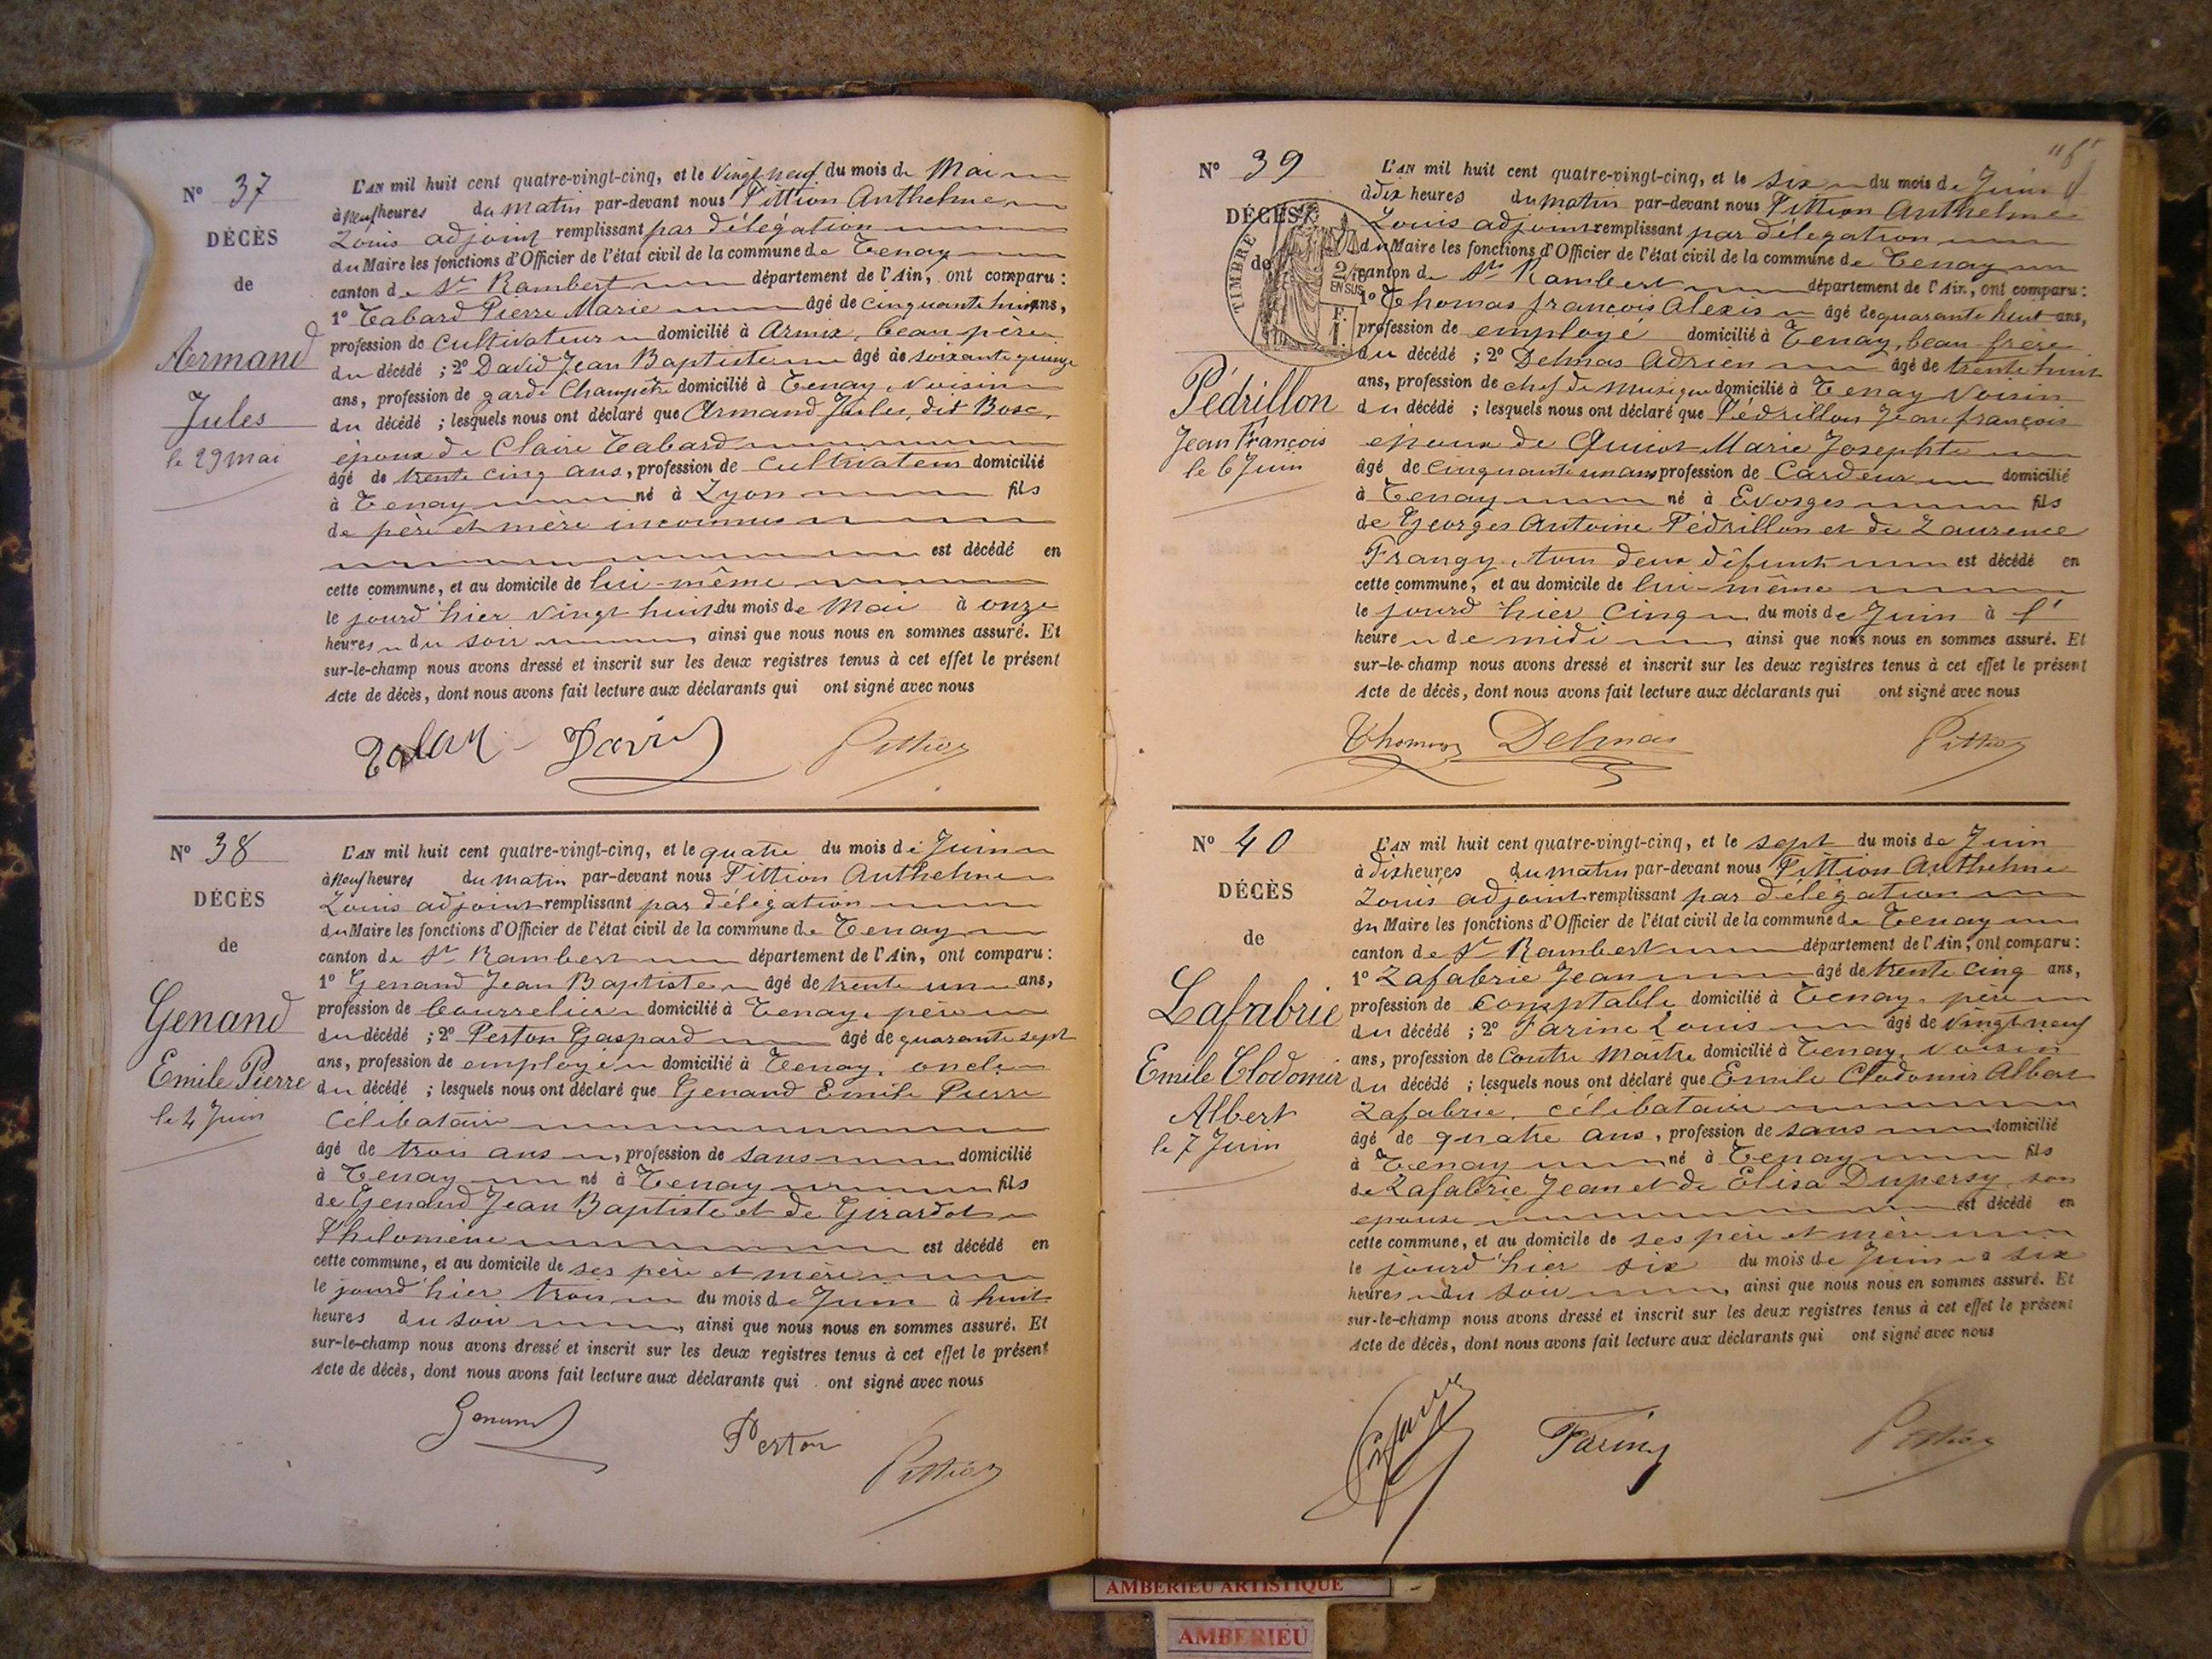 N° 37
DÉCÈS
de
Armand
Jules
le 29 mai
L'AN mil huit cent quatre-vingt-cinq, et le vingt neuf du mois de Mai
à neuf heures du matin par-devant nous Pittion Anthelme
Louis adjoint remplissant par délégation
du Maire les fonctions d'Officier de l'état civil de la commune de Tenay
canton de St Rambert département de l'Ain, ont comparu :
1° Tabard Pierre Marie âgé de cinquante huit ans,
profession de cultivateur domicilié à Armix, beau père
du décédé ; 2° David Jean Baptiste âgé de soixante quinze
ans, profession de garde Champêtre domicilié à Tenay, voisin
du décédé ; lesquels nous ont déclaré que Armand Jules, dit Bosc,
époux de Claire Tabard
âgé de trente cinq ans, profession de cultivateur domicilié
à Tenay né à Lyon fils
de père et mère inconnus
est décédé en
cette commune, et au domicile de lui-même
le jourd'hier vingt huit du mois de Mai à onze
heures du soir, ainsi que nous nous en sommes assuré. Et
sur-le-champ nous avons dressé et inscrit sur les deux registres tenus à cet effet le présent
Acte de décès, dont nous avons fait lecture aux déclarants qui ont signé avec nous
David Pittion
N° 38
DÉCÈS
de
Genand
Emile Pierre
le 4 Juin
L'AN mil huit cent quatre-vingt-cinq, et le quatre du mois de Juin
à neuf heures du matin par-devant nous Pittion Anthelme
Louis adjoint remplissant par délégation
du Maire les fonctions d'Officier de l'état civil de la commune de Tenay
canton de St Rambert département de l'Ain, ont comparu :
1° Genand Jean Baptiste âgé de trente un ans,
profession de bourrelier domicilié à Tenay, père
du décédé ; 2° Perton Gaspard âgé de quarante sept
ans, profession de employé domicilié à Tenay, oncle
du décédé ; lesquels nous ont déclaré que Genand Emile Pierre
célibataire
âgé de trois ans, profession de sans domicilié
à Tenay né à Tenay fils
de Genand Jean Baptiste et de Girardot
Philomène est décédé en
cette commune, et au domicile de ses père et mère
le jourd'hier trois du mois de Juin à huit
heures du soir, ainsi que nous nous en sommes assuré. Et
sur-le-champ nous avons dressé et inscrit sur les deux registres tenus à cet effet le présent
Acte de décès, dont nous avons fait lecture aux déclarants qui ont signé avec nous
Genand Perton Pittion
N° 39
DÉCÈS
de
TIMBRE
2/10 EN SUS
Pédrillon
Jean François
le 6 Juin
L'AN mil huit cent quatre-vingt-cinq, et le six du mois de Juin
à dix heures du matin par-devant nous Pittion Anthelme
Louis adjoint remplissant par délégation
du Maire les fonctions d'Officier de l'état civil de la commune de Tenay
canton de St Rambert département de l'Ain, ont comparu :
1° Thomas françois Alexis âgé de quarante huit ans,
profession de employé domicilié à Tenay, beau frère
du décédé ; 2° Delmas Adrien âgé de trente huit
ans, profession de chef de musique domicilié à Tenay Voisin
du décédé ; lesquels nous ont déclaré que Pédrillon Jean françois
époux de Quinot Marie Josephte
âgé de cinquante un ans profession de Cardeur domicilié
à Tenay né à Evosges fils
de Georges Antoine Pédrillon et de Laurence
Frangy, tous deux défunts est décédé en
cette commune, et au domicile de lui-même
le jourd'hier cinq du mois de Juin à l'
heure de midi ainsi que nous nous en sommes assuré. Et
sur-le-champ nous avons dressé et inscrit sur les deux registres tenus à cet effet le présent
Acte de décès, dont nous avons fait lecture aux déclarants qui ont signé avec nous
Thomas Delmas Pittion
N° 40
DÉCÈS
de
Lafabrie
Emile Clodomir
Albert
le 7 Juin
L'AN mil huit cent quatre-vingt-cinq, et le sept du mois de Juin
à dix heures du matin par-devant nous Pittion Anthelme
Louis adjoint remplissant par délégation
du Maire les fonctions d'Officier de l'état civil de la commune de Tenay
canton de St Rambert département de l'Ain, ont comparu :
1° Lafabrie Jean âgé de trente cinq ans,
profession de comptable domicilié à Tenay, père
du décédé ; 2° Farine Louis âgé de vingt neuf
ans, profession de Contre Maître domicilié à Tenay, voisin
du décédé ; lesquels nous ont déclaré que Emile Clodomir Albert
Lafabrie, célibataire
âgé de quatre ans, profession de sans domicilié
à Tenay né à Tenay fils
de Lafabrie Jean et de Elisa Dupersy, son
épouse est décédé en
cette commune, et au domicile de ses père et mère
le jourd'hier six du mois de Juin à six
heures du soir, ainsi que nous nous en sommes assuré. Et
sur-le-champ nous avons dressé et inscrit sur les deux registres tenus à cet effet le présent
Acte de décès, dont nous avons fait lecture aux déclarants qui ont signé avec nous
Farine Pittion
AMBERIEU ARTISTIQUE
AMBERIEU